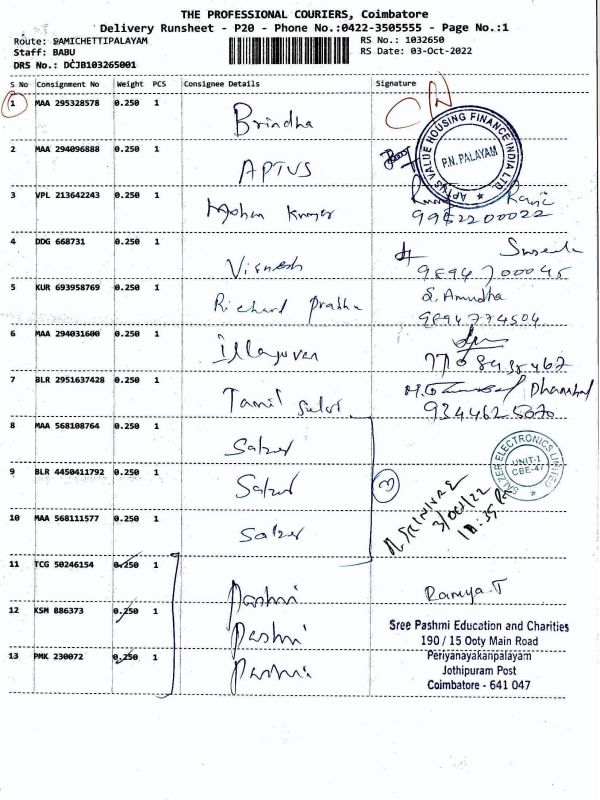 THE PROFESSIONAL COURIERS, Coimbatore
Delivery Runsheet - P20 - Phone No.:0422-3505555 - Page No.:1
Route: SAMICHETTIPALAYAM
RS No.: 1032650
Staff: BABU
RS Date: 03-Oct-2022
DRS No.: DCJB103265001
S No Consignment No Weight PCS Consignee Details Signature
1 MAA 295328578 0.250 1 Brindha
2 MAA 294096888 0.250 1 APTUS
APTUS VALUE HOUSING FINANCE INDIA LTD.
P.N. PALAYAM
3 VPL 213642243 0.250 1 Mohan Kumar
9952200022
4 DDG 668731 0.250 1 Vignesh
9894700045
5 KUR 693958769 0.250 1 Richard Prabhu S. Amudha
9894774504
6 MAA 294031600 0.250 1
7708438467
7 BLR 2951637428 0.250 1 Tamil Selvi
9344625070
8 MAA 568108764 0.250 1 Salzer
SALZER ELECTRONICS LIMITED
UNIT-1
CBE-47
9 BLR 4450411792 0.250 1 Salzer 3
10 MAA 568111577 0.250 1 Salzer
11 TCG 50246154 0.250 1 Pashmi Ramya.T
12 KSM 886373 0.250 1 Pashmi
13 PMK 230072 0.250 1 Pashmi
Sree Pashmi Education and Charities
190 / 15 Ooty Main Road
Periyanayakanpalayam
Jothipuram Post
Coimbatore - 641 047